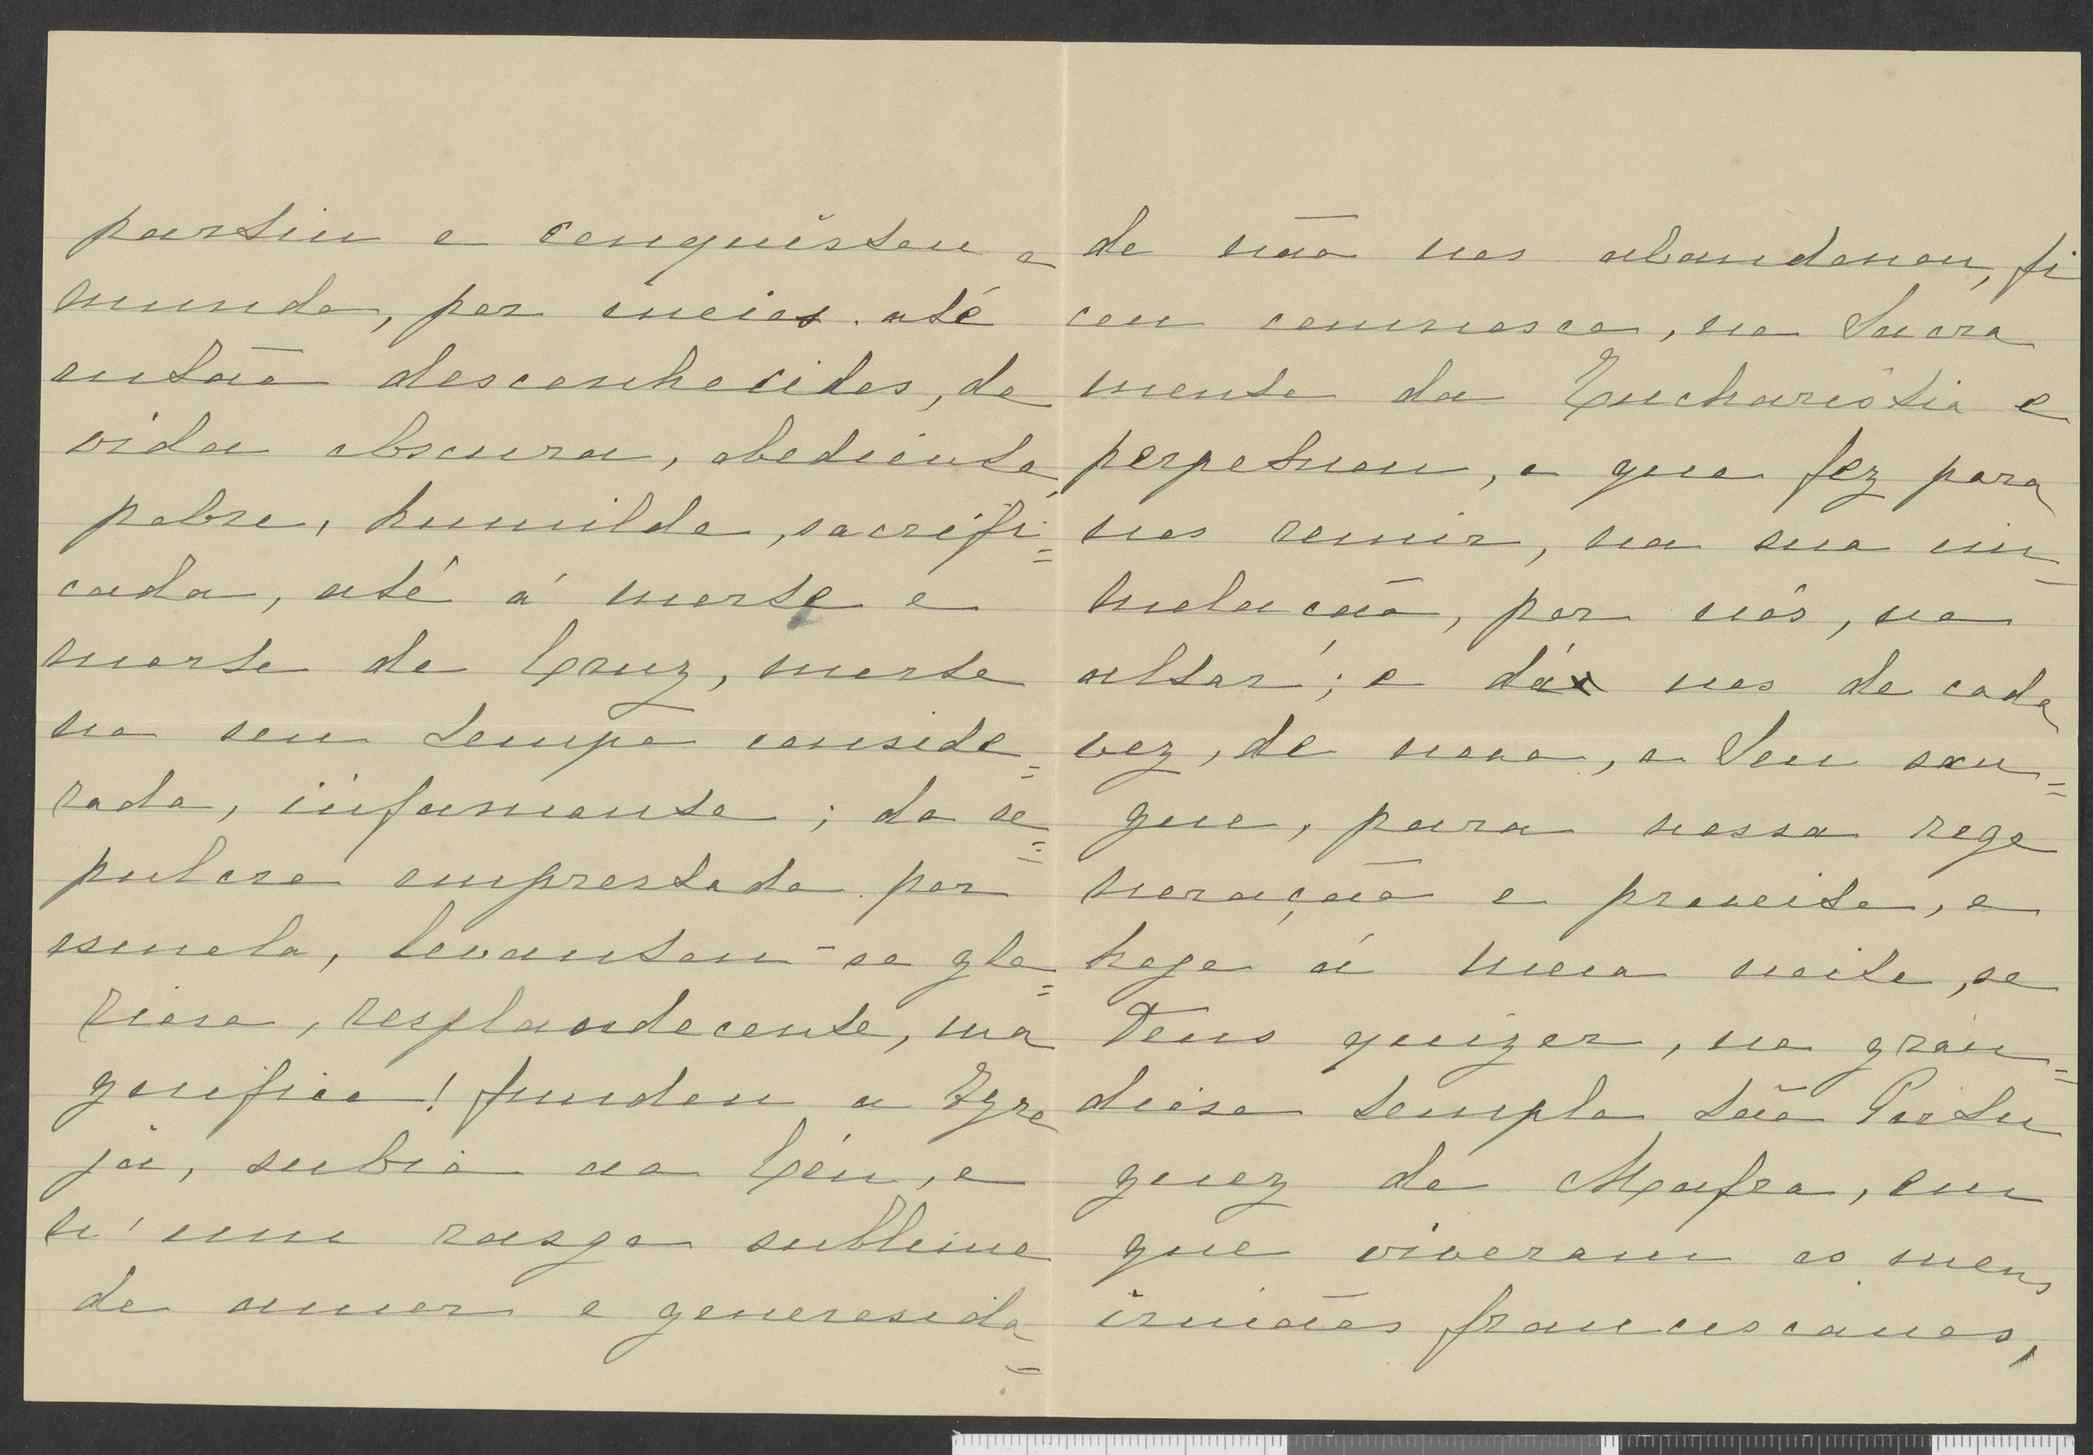 partiu e conquistou o
mundo, por meios até
então desconhecidos, da
vida obscura, obediente,
pobre, humilde, sacrifi=
cada, até á morte e
morte de Cruz, morte
no seu tempo conside=
rada, infamante; do se=
pulcro emprestado por
esmola, levantou-se glo=
rioso, resplandecente, ma
gnifico! fundou a Egre
ja, subio ao Céu, e
n'um rasgo sublime
de amor e generosida=
de não nos abandonou, fi
cou comnosco, no Sacra
mento da Eucharistia e
perpetuou, o que fez para
nos remir, na sua im-
molacão, por nós, no
altar; e dá nos de cada
vez, de novo, o Seu san=
gue, para nossa rege
neração e proveito, e
hoje á meia noite, se
Deus quizer, no gran=
dioso templo tão Portu
guez de Mafra, em
que viveram os meus
irmãos franciscanos,